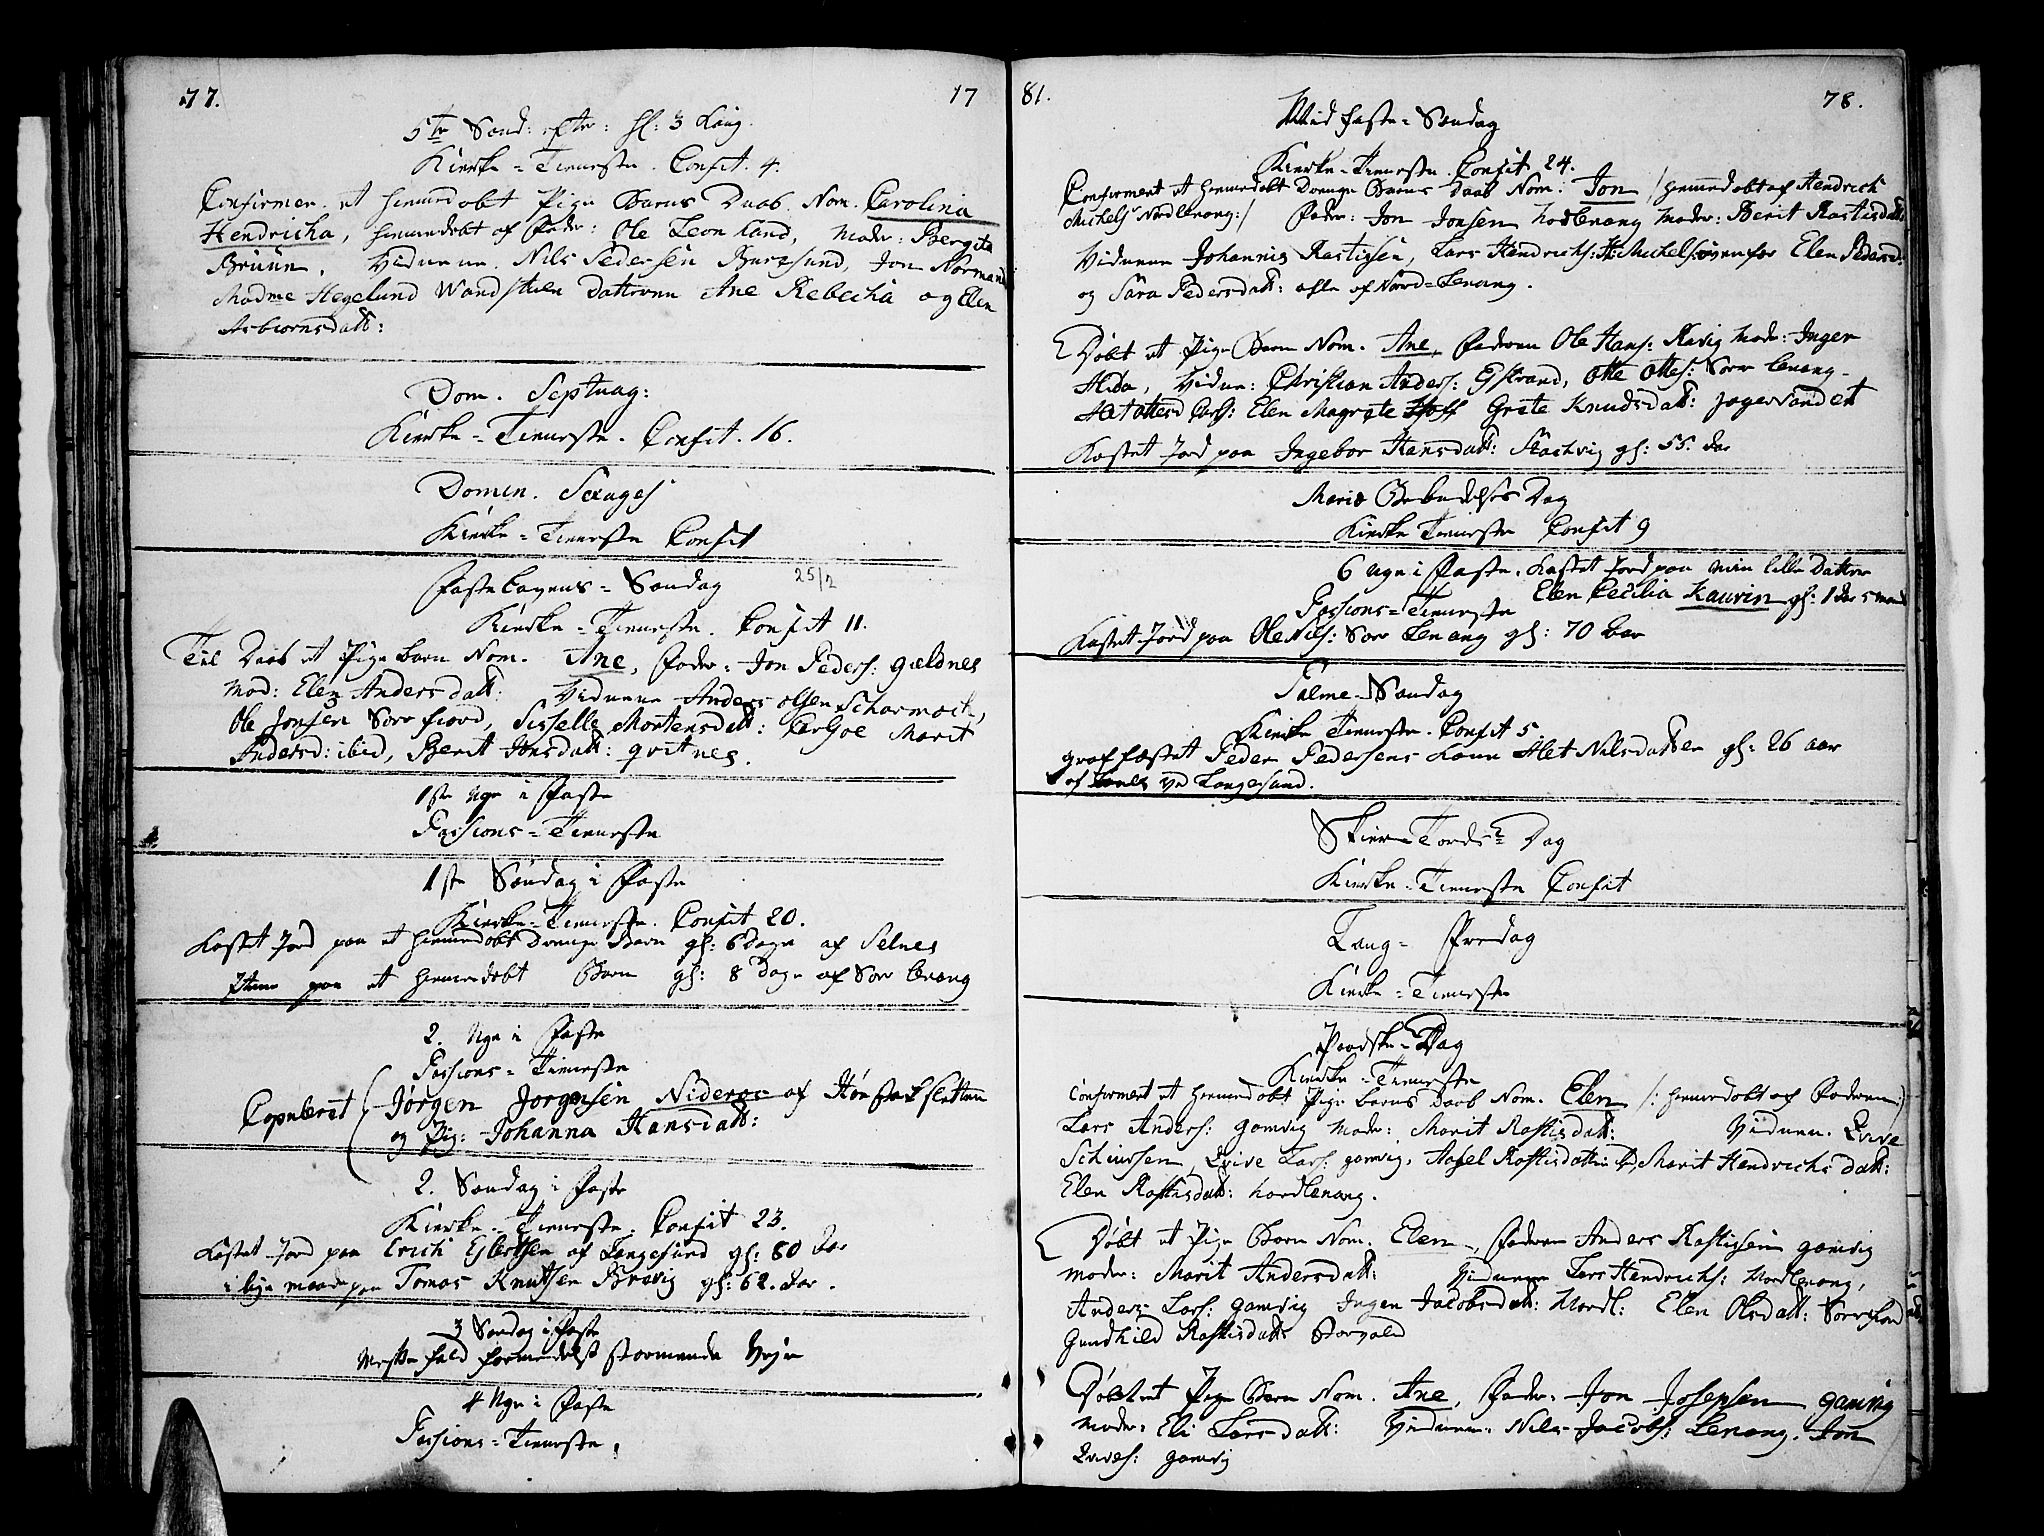 77. 17
5te Sønd: efter: Hl: 3 Kong.
Kircke-Tieneste. Confit. 4.
Confirmer. et hiemedøbt Pige Barns Daab. Nom. Carolina
Hendricha, hiemedøbt af Fader: Ole Leonland, Moder: Bergita
Bruun. Vidnerne. Nils Pedersen Burøsund, Jon Normand
Madme Hegelund Datteren Ane Rebecha og Elen
Asbiornsdatt:
Dom. Septuag:
Kircke-Tieneste. Confit. 16.
Domin. Sexages
Kircke-Tieneste Confit
Fastelavens-Søndag 25/2
Kircke-Tieneste. Confit 11.
Til Daab et Pige barn Nom. Ane, Fader: Jon Peders: gældnes
Mod: Elen Andersdatt: Vidnerne Anders Olsen Scharmoch,
Ole Jonsen Sørfiord, Sisselle Mortensdatt: Carlsøe Marit
Andersd: ibid, Berit Jonsdatt: qvitnes.
1ste Uge i Faste
Passions-Tieneste
1ste Søndag i Faste
Kircke-Tieneste. Confit 20.
Kastet Jord paa et hiemedøbt Drenge Barn gl: 6 dage af Selnes
Item paa et hiemedøbt Barn gl: 8 Dage af Sør lenang
2. Uge i Faste
Passions-Tieneste
Copuleret Jørgen Jørgensen Nideros af Hansnes Sletten
og Pig: Johanna Hansdatt:
2. Søndag i Faste
Kircke-Tieneste. Confit 23.
Kastet Jord paa Erich Ejlertsen af Langesund gl: 80 Aar
i lige maade paa Tomas Knutsen Brevig gl: 62. Aar.
3 Søndag i Faste
Messe fald formedelst stormende Vejr
4 Uge i Faste
Passions-Tieneste.
81. 78.
Mid faste-Søndag
Kircke-Tieneste. Confit 24.
Confirmert et hiemedøbt Drenge Barns Daab Nom: Jon /hiemedøbt af Hendrich
Michels: Nordlenang:/ Fader: Jon Jonsen Nordlenang Moder: Berit Rastisdatt
Vidnerne Johannis Rastissen, Lars Hendrichs: H: Michels: ovenfor Elen Pedersd:
og Sara Pedersdatt: alle af Nord-Lenang.
Døbt et Pige Barn Nom. Ane, Faderen Ole Hans: Ravig Moder: Inger
Vidne: Christian Anders: Ejstrand, Otte Ottes: Sør lenang
Elen Magrete Hoff Grete Knudsdatt: Jægervandet
Kastet Jord paa Ingebor Hansdatt: Stachvig gl: 55. Aar
Mariæ Bebudelses Dag
Kircke Tieneste Confit 9
6 Uge i Faste. Kastet Jord paa min lille Datter
Elen Cecilia Kaurin gl: 1 Aar 5 maan
Passions-Tieneste
Kastet Jord paa Ole Nils: Sør Lenang gl: 70 Aar
Palme-Søndag
Kircke Tieneste. Confit 5.
graf fæstet Peder Pedersens Kone Alet Nilsdatter gl: 26 aar
af ved Langesund.
Skier Tords-Dag
Kircke-Tieneste Confit
Lang-Fredag
Kircke-Tieneste
Paaske-Dag
Kircke-Tieneste
Confirmert et hiemedøbt Pige barns Daab Nom. Elen /: hiemedøbt af Faderen:/
Lars Anders: gamvig Moder: Marit Rastisdatt: Vidnen. Qvive
Schiersen, Qvive Lars: gamvig, Axsel Rastisdatter ib, Marit Hendrichsdatt:
Elen Rastisdatt: Nordlenang.
Døbt et Pige Barn Nom. Elen, Faderen Anders Rastissen gamvig
Moder: Marit Andersdatt: Vidnerne Lars Hendrichs: Nordlenang,
Anders Lars: gamvig Inger Jacobsdatt: Nordl: Elen Olsdatt: Sørstrand
Gundhild Rastisdatt:
Døbt et Pige Barn Nom. Ane, Fader: Jon Josepsen gamvig
Moder: Eli Larsdatt: Vidnerne: Nils Jacobs: Lenang. Jon
Qvives: gamvig